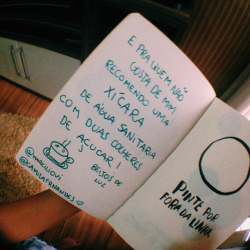 E PRA QUEM NÃO
GOSTA DE MIM
RECOMENDO UMA
XÍCARA
DE ÁGUA SANITÁRIA
COM DUAS COLHERES
DE AÇÚCAR!
BEIJOS DE
LUZ
PINTE POR
FORA DA LINHA